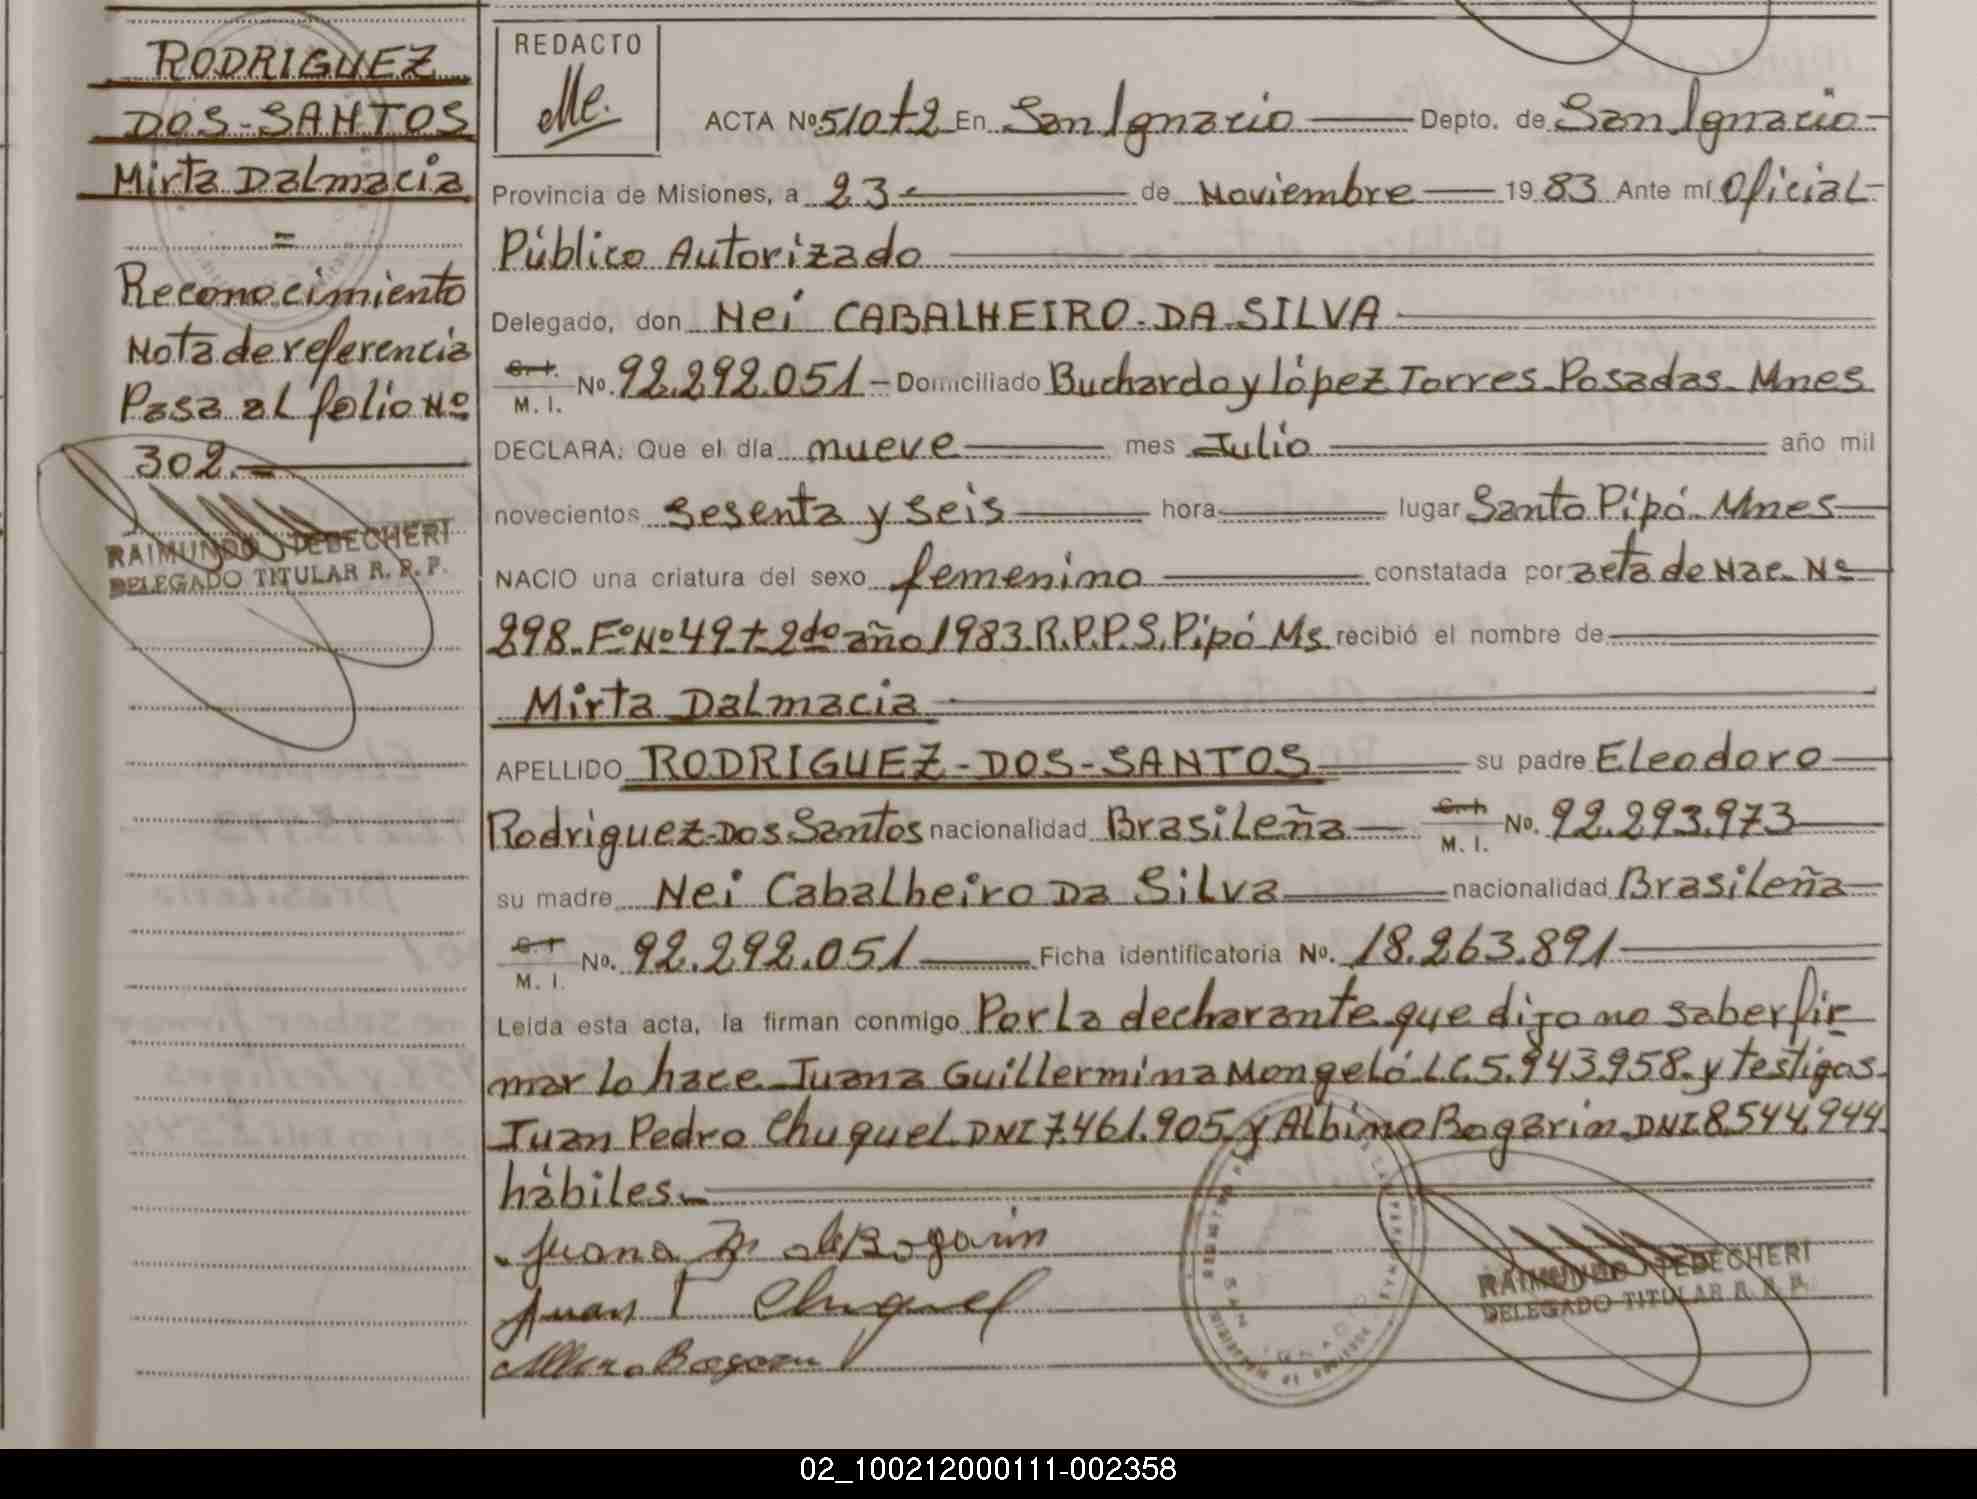 RODRIGUEZ
DOS-SANTOS
Mirta Dalmacia
=
Reconocimiento
Nota de referencia
Pasa al folio Nº
302.-
RAIMUNDO TEBECHERI
DELEGADO TITULAR R. P. P.
REDACTO
Me.
ACTA Nº 510 t2 En San Ignacio Depto. de San Ignacio
Provincia de Misiones, a 23 de Noviembre 19 83 Ante mí Oficial
Público Autorizado
Delegado, don Nei CABALHEIRO-DA-SILVA
M. I. No. 92.292.051 - Domiciliado Buchardo y López Torres Posadas Mnes
DECLARA: Que el día nueve mes Julio año mil
novecientos sesenta y seis hora lugar Santo Pipó. Mnes
NACIO una criatura del sexo femenino constatada por acta de Nac. Nº
298. Fº Nº 49 t 2do año 1983 R.P.P.S. Pipó Ms recibió el nombre de
Mirta Dalmacia
APELLIDO RODRIGUEZ-DOS-SANTOS su padre Eleodoro
Rodriguez-Dos Santos nacionalidad Brasileña M. I. No. 92.293.973
su madre Nei Cabalheiro Da Silva nacionalidad Brasileña
M. I. No. 92.292.051 Ficha identificatoria No. 18.263.891
Leída esta acta, la firman conmigo Por la decharante que dijo no saber fir
mar lo hace Juana Guillermina Mongeló LC.5.943.958 y testigos
Juan Pedro Chuquel DNI 7.461.905 y Albino Bogarin DNI 8.544.944
hábiles.
Juana M de Bogarin
Juan P Chuquel
Albino Bogarin
SAN IGNACIO
RAIMUNDO TEBECHERI
DELEGADO TITULAR R. P. P.
02_100212000111-002358